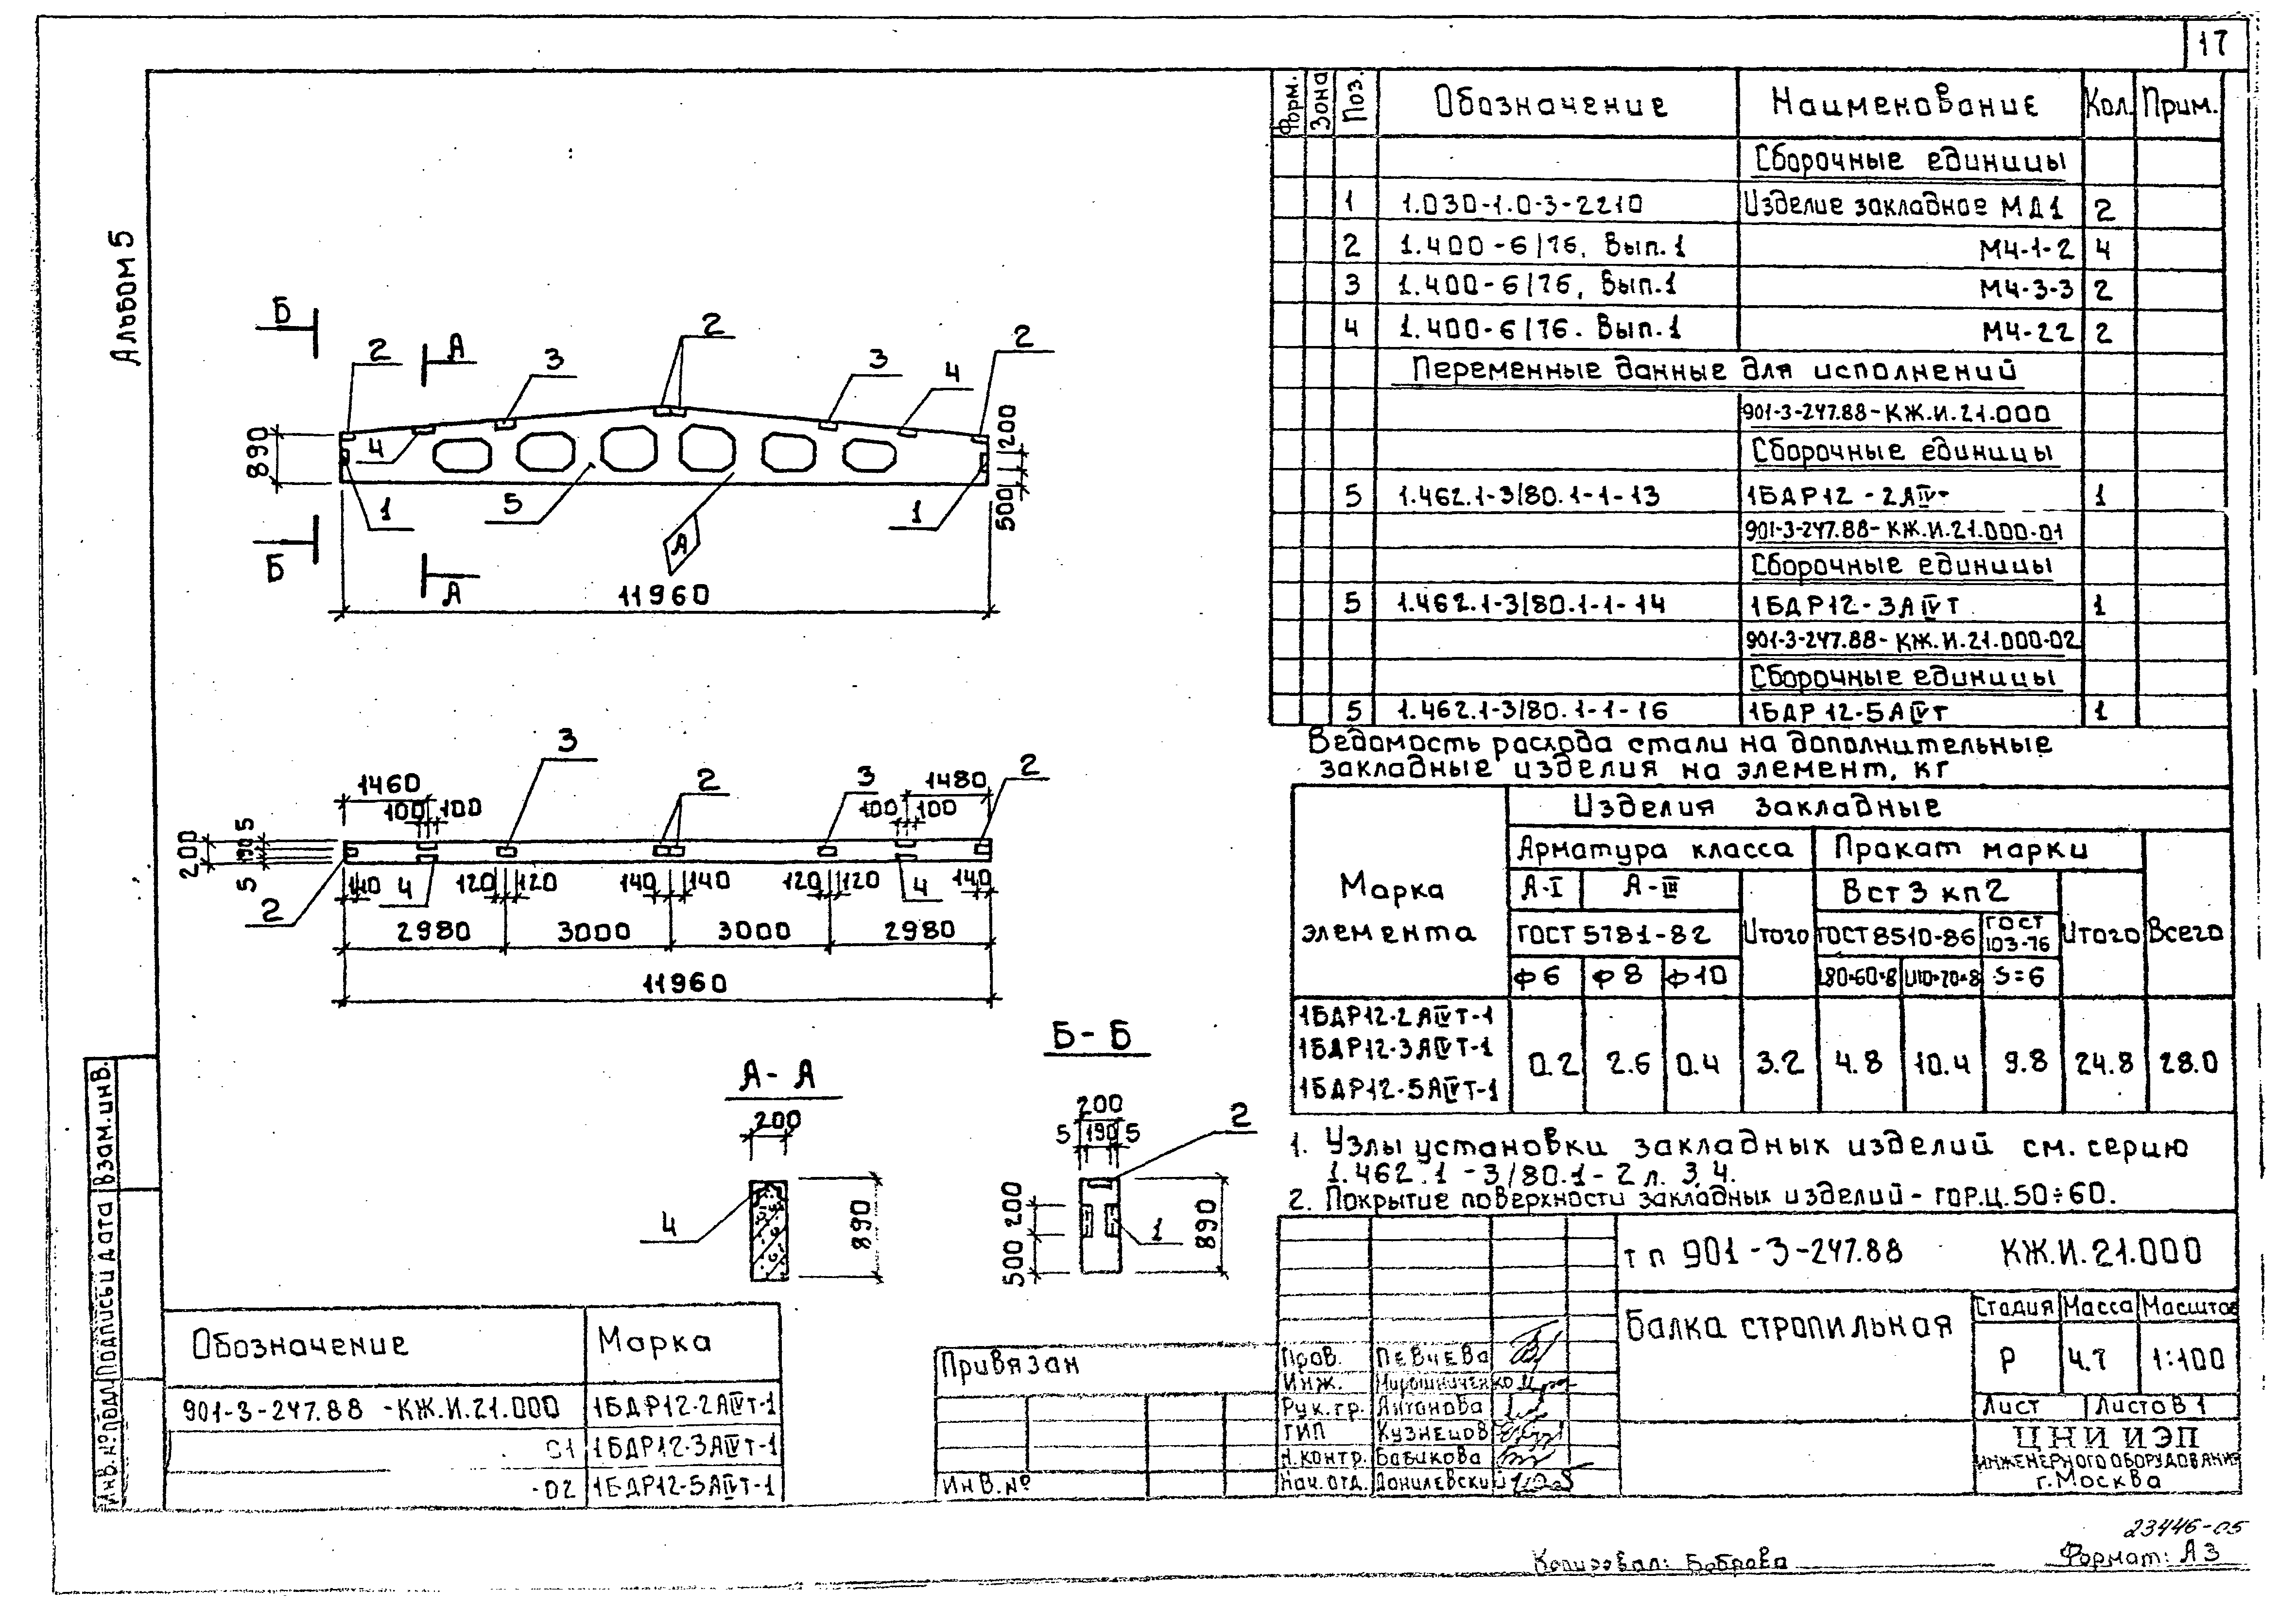 17
Альбом 5
Б
А
2
3
2
3
4
2
890
4
1
5
А
1
200
500
Б
А
11960
3
2
3
2
1460
1480
100 100
100 100
200
5
190
5
2
140
4
120 120
140 140
120 120
4
140
2980
3000
3000
2980
11960
А-А
200
4
890
Б-Б
200
5 190 5
2
200
500
1
890
Форм. Зона Поз. Обозначение Наименование Кол. Прим.
Сборочные единицы
1 1.030-1.0-3-2210 Изделие закладное МД1 2
2 1.400-6/76. Вып.1 М4-1-2 4
3 1.400-6/76, Вып.1 М4-3-3 2
4 1.400-6/76. Вып.1 М4-22 2
Переменные данные для исполнений
901-3-247.88-КЖ.И.21.000
Сборочные единицы
5 1.462.1-3/80.1-1-13 1БДР12-2АIVт 1
901-3-247.88-КЖ.И.21.000-01
Сборочные единицы
5 1.462.1-3/80.1-1-14 1БДР12-3АIVт 1
901-3-247.88-КЖ.И.21.000-02
Сборочные единицы
5 1.462.1-3/80.1-1-16 1БДР12-5АIVт 1
Ведомость расхода стали на дополнительные
закладные изделия на элемент, кг
Марка элемента
Изделия закладные
Арматура класса Прокат марки
А-I А-III Вст3 кп2
ГОСТ 5781-82 Итого ГОСТ8510-86 ГОСТ 103-76 Итого Всего
ф6 ф8 ф10 L80×60×8 L110×70×8 S=6
1БДР12-2АIVт-1
1БДР12-3АIVт-1
1БДР12-5АIVт-1
0.2 2.6 0.4 3.2 4.8 10.4 9.8 24.8 28.0
1. Узлы установки закладных изделий см. серию
1.462.1-3/80.1-2 л. 3,4.
2. Покрытие поверхности закладных изделий - гор.ц.50÷60.
тп 901-3-247.88 КЖ.И.21.000
Балка стропильная
Стадия Масса Масштаб
Р 4.7 1:100
Лист Листов 1
ЦНИИЭП
инженерного оборудования
г.Москва
Пров. Певчева
Инж. Мирошниченко
Рук.гр. Антонова
ГИП Кузнецов
Н.контр. Бабикова
Нач.отд. Данилевский
Привязан
Инв.№
Обозначение Марка
901-3-247.88 -КЖ.И.21.000 1БДР12-2АIVт-1
01 1БДР12-3АIVт-1
-02 1БДР12-5АIVт-1
Инв.№подл. Подпись и дата Взам.инв.
23446-05
Копировал: Боброва
Формат: А3